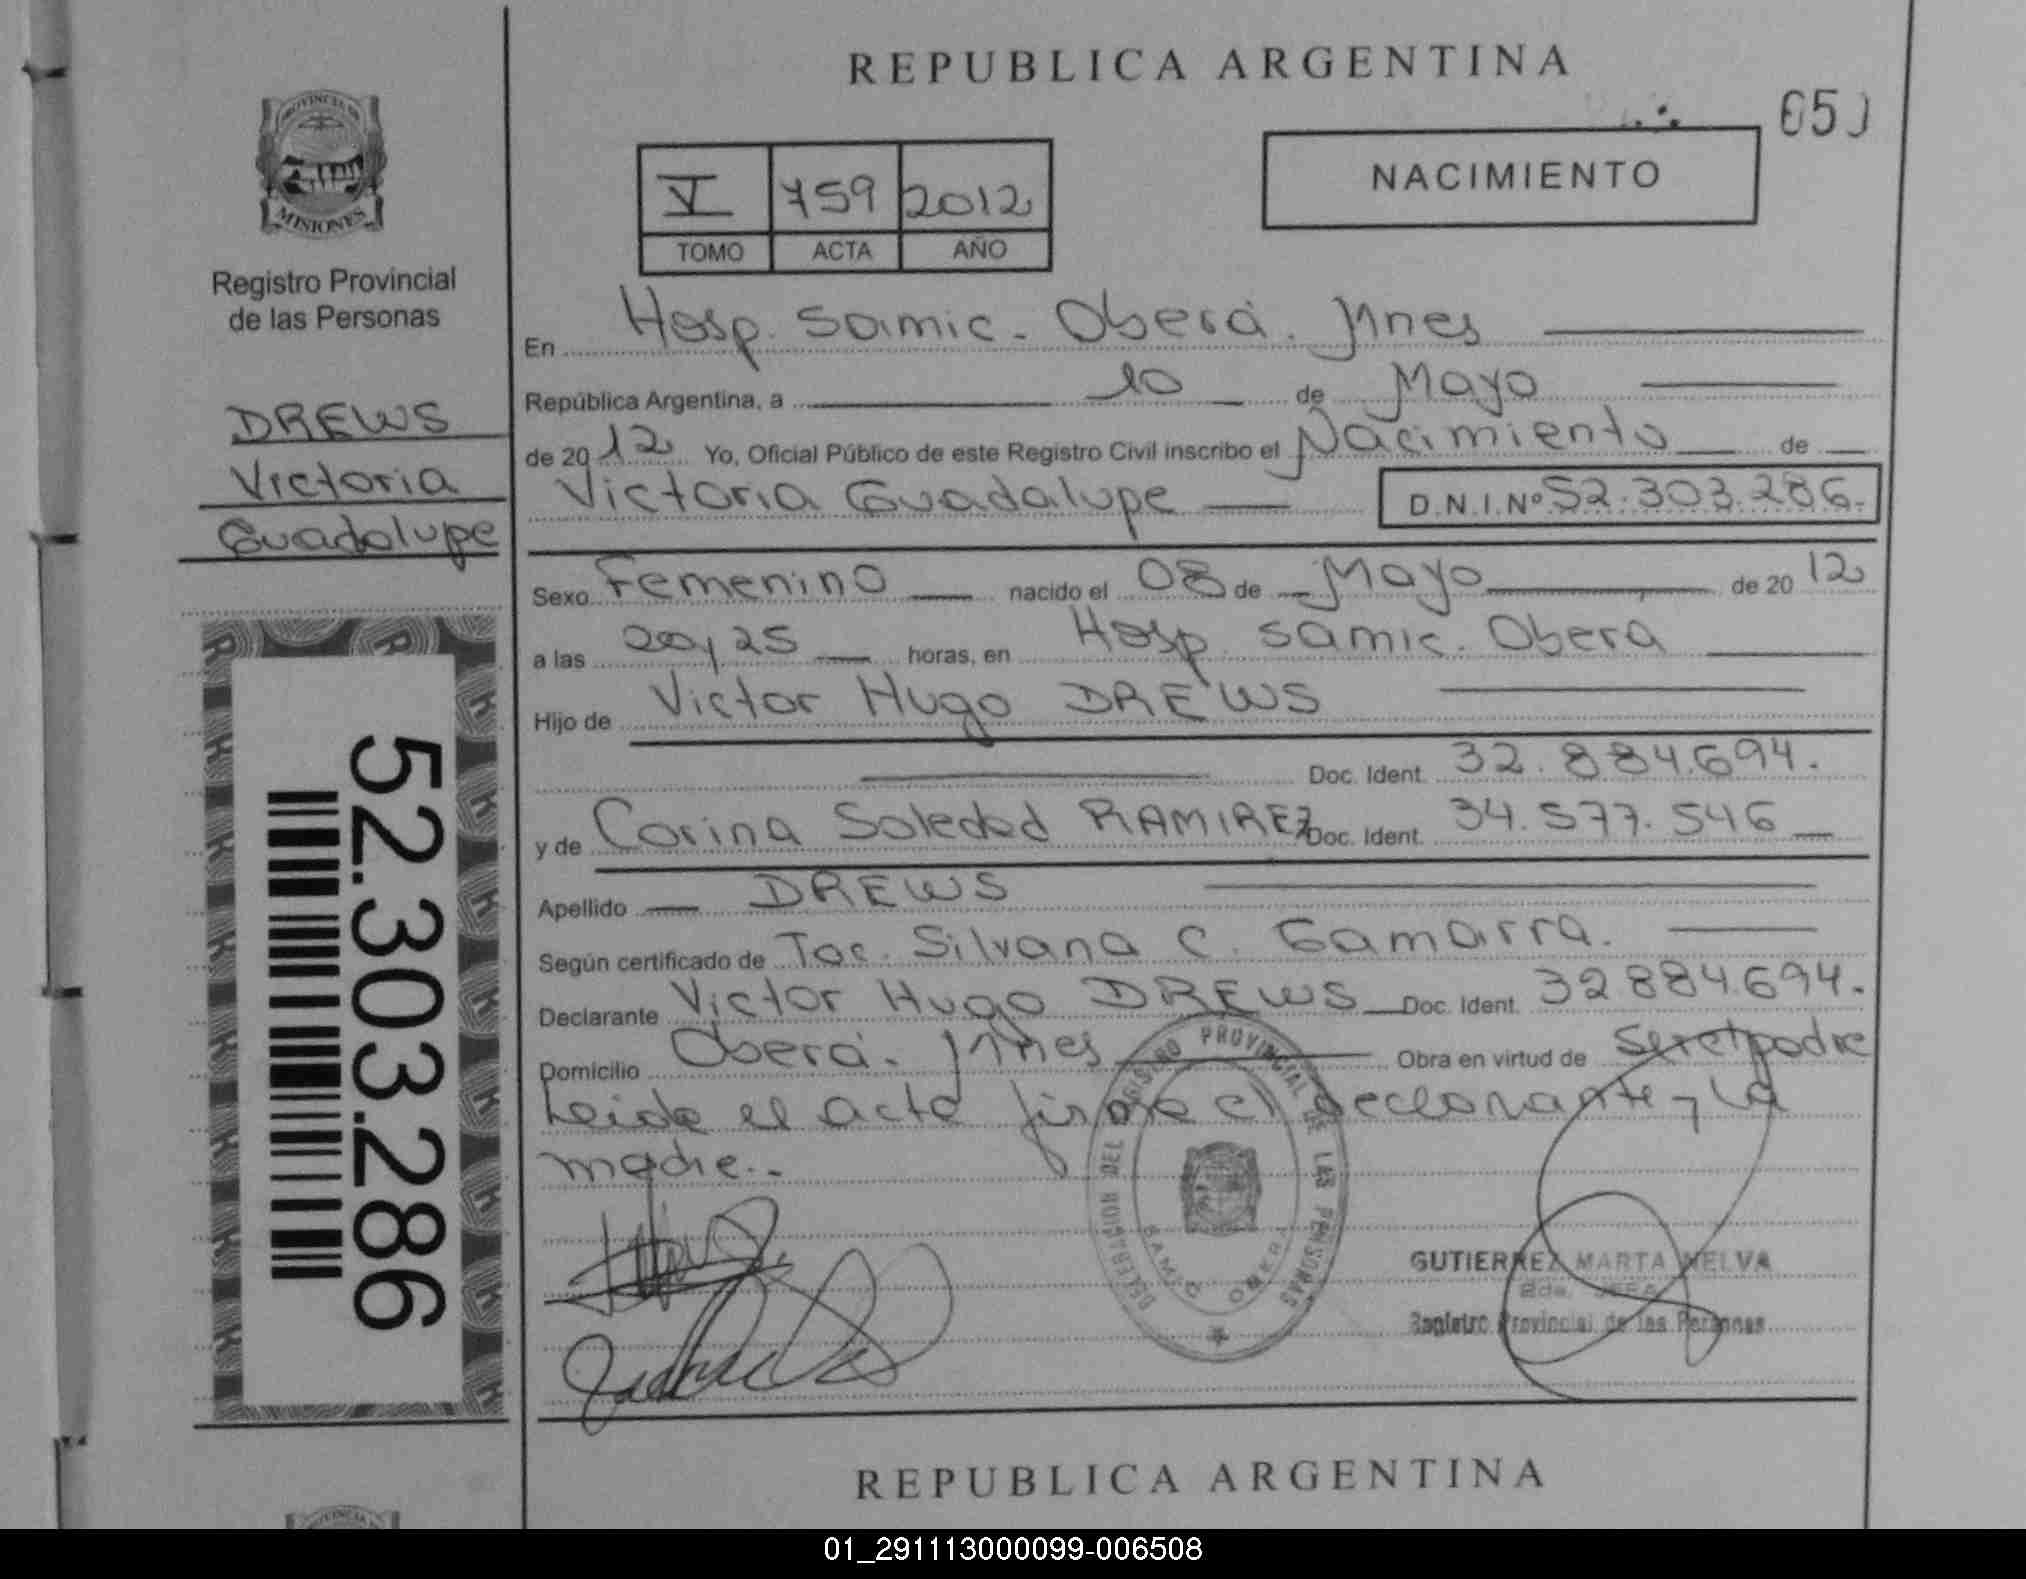 REPUBLICA ARGENTINA
PROVINCIA DE
MISIONES
Registro Provincial
de las Personas
DREWS
Victoria
Guadalupe
52.303.286
V 759 2012
TOMO ACTA AÑO
NACIMIENTO
En Hosp. Samic. Oberá. Mnes
República Argentina, a 10 de Mayo
de 2012 Yo, Oficial Público de este Registro Civil inscribo el Nacimiento de
Victoria Guadalupe D.N.I.Nº 52.303.286.
Sexo Femenino nacido el 08 de Mayo de 2012
a las 20,25 horas, en Hosp. Samic. Oberá
Hijo de Victor Hugo DREWS
Doc. Ident. 32.884.694.
y de Corina Soledad RAMIREZ Doc. Ident. 34.577.546
Apellido DREWS
Según certificado de Toc. Silvana C. Gamarra.
Declarante Victor Hugo DREWS Doc. Ident. 32884.694.
Domicilio Oberá. Mnes Obra en virtud de ser el padre
Leida el acta firma el declarante y la
madre..
DELEGACION DEL REGISTRO PROVINCIAL DE LAS PERSONAS
GUTIERREZ MARTA NELVA
2da. JEFA
Registro Provincial de las Personas
REPUBLICA ARGENTINA
01_291113000099-006508